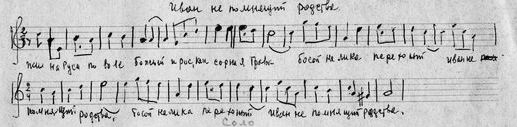 Иван не помнящий родства.
Жил на Руси по воле божьей и рос, как сорная трава. босой калика перехожий иван не
помнящий родства, босой калика перехожий иван не помнящий родства.
Соло